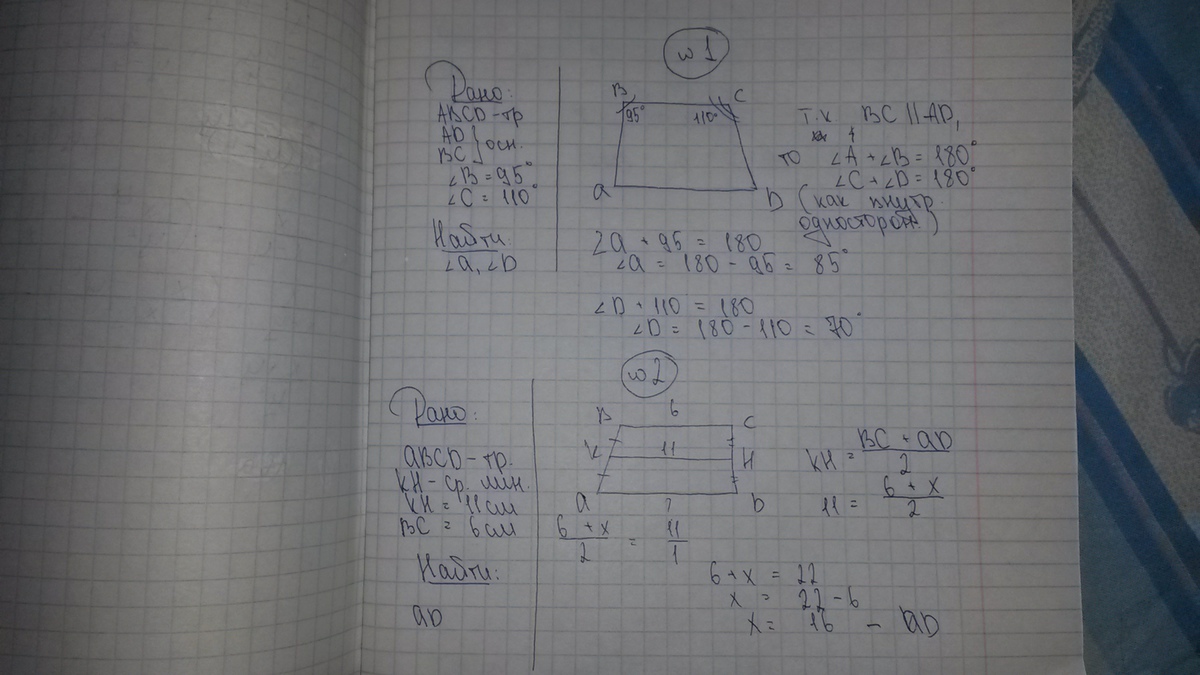 w 1
Дано:
ABCD - тр
AD
BC } осн.
∠B = 95°
∠C = 110°
Найти
∠a, ∠D
B C
95° 110°
a D
т.к BC || AD,
то ∠A + ∠B = 180°
∠C + ∠D = 180°
(как внутр.
односторон.)
∠a + 95 = 180
∠a = 180 - 95 = 85°
∠D + 110 = 180
∠D = 180 - 110 = 70°
w 2
Дано:
aBCD - тр.
KH - ср. лин.
KH = 11 см
BC = 6 см
Найти:
aD
6
B C
K 11 H
a ? D
KH = BC + aD / 2
11 = 6 + x / 2
6 + x / 2 = 11 / 1
6 + x = 22
x = 22 - 6
x = 16 - aD